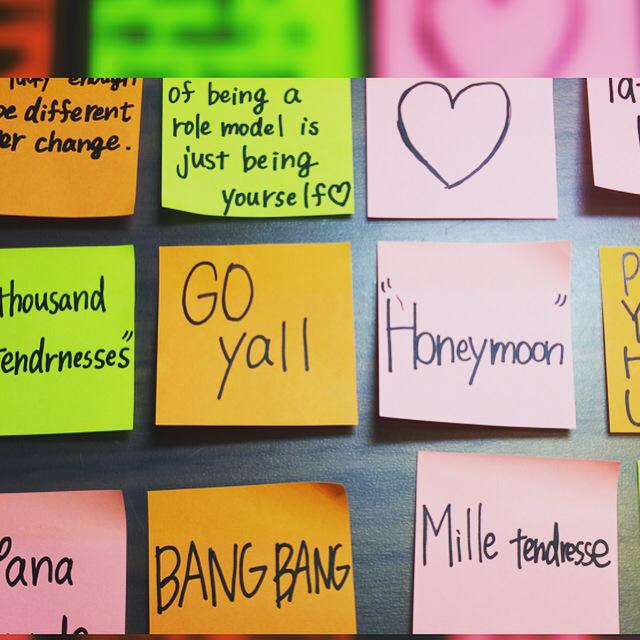 be different
er change.
of being a
role model is
just being
yourself♡
thousand
tendrnesses"
GO
yall
"Honeymoon"
P
Y
H
U
Pana
BANG BANG
Mille tendresse